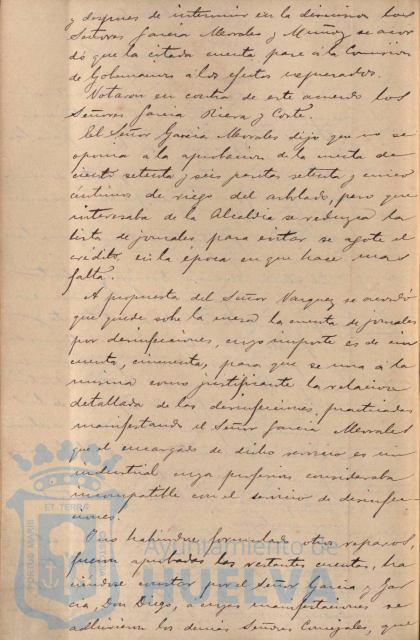 y despues de intervenir en la discusion los
Señores Garcia Morales y Muñoz se acor
dó que la citada cuenta pase á la Comision
de Gobernacion á los efectos expresados.
Votaron en contra de este acuerdo los
Señores Garcia Riera y Corte.
El Señor Garcia Morales dijo que no se
oponia á la aprobacion de la cuenta de
ciento setenta y seis pesetas setenta y cinco
céntimos de riego del arbolado, pero que
interesaba de la Alcaldia se reduzca la
lista de jornales para evitar se agote el
crédito en la época en que hace mas
falta.
A propuesta del Señor Vazquez se acordó
que quede sobre la mesa la cuenta de jornales
por desinfecciones, cuyo importe es de cin
cuenta, cincuenta, para que se una á la
misma como justificante la relacion
detallada de las desinfecciones practicadas
manifestando el Señor Garcia Morales
que el encargado de dicho servicio es un
industrial cuya profesion consideraba
incompatible con el servicio de desinfec
ciones.
No habiendose formulado otros reparos,
fueron aprobadas las restantes cuentas, ha
ciendose constar por el Señor Garcia y Gar
cia, Don Diego, a cuyas manifestaciones se
adhirieron los demas Señores Concejales, que
PORTUS MARIS
ET TERRÆ
Ayuntamiento de
HUELVA